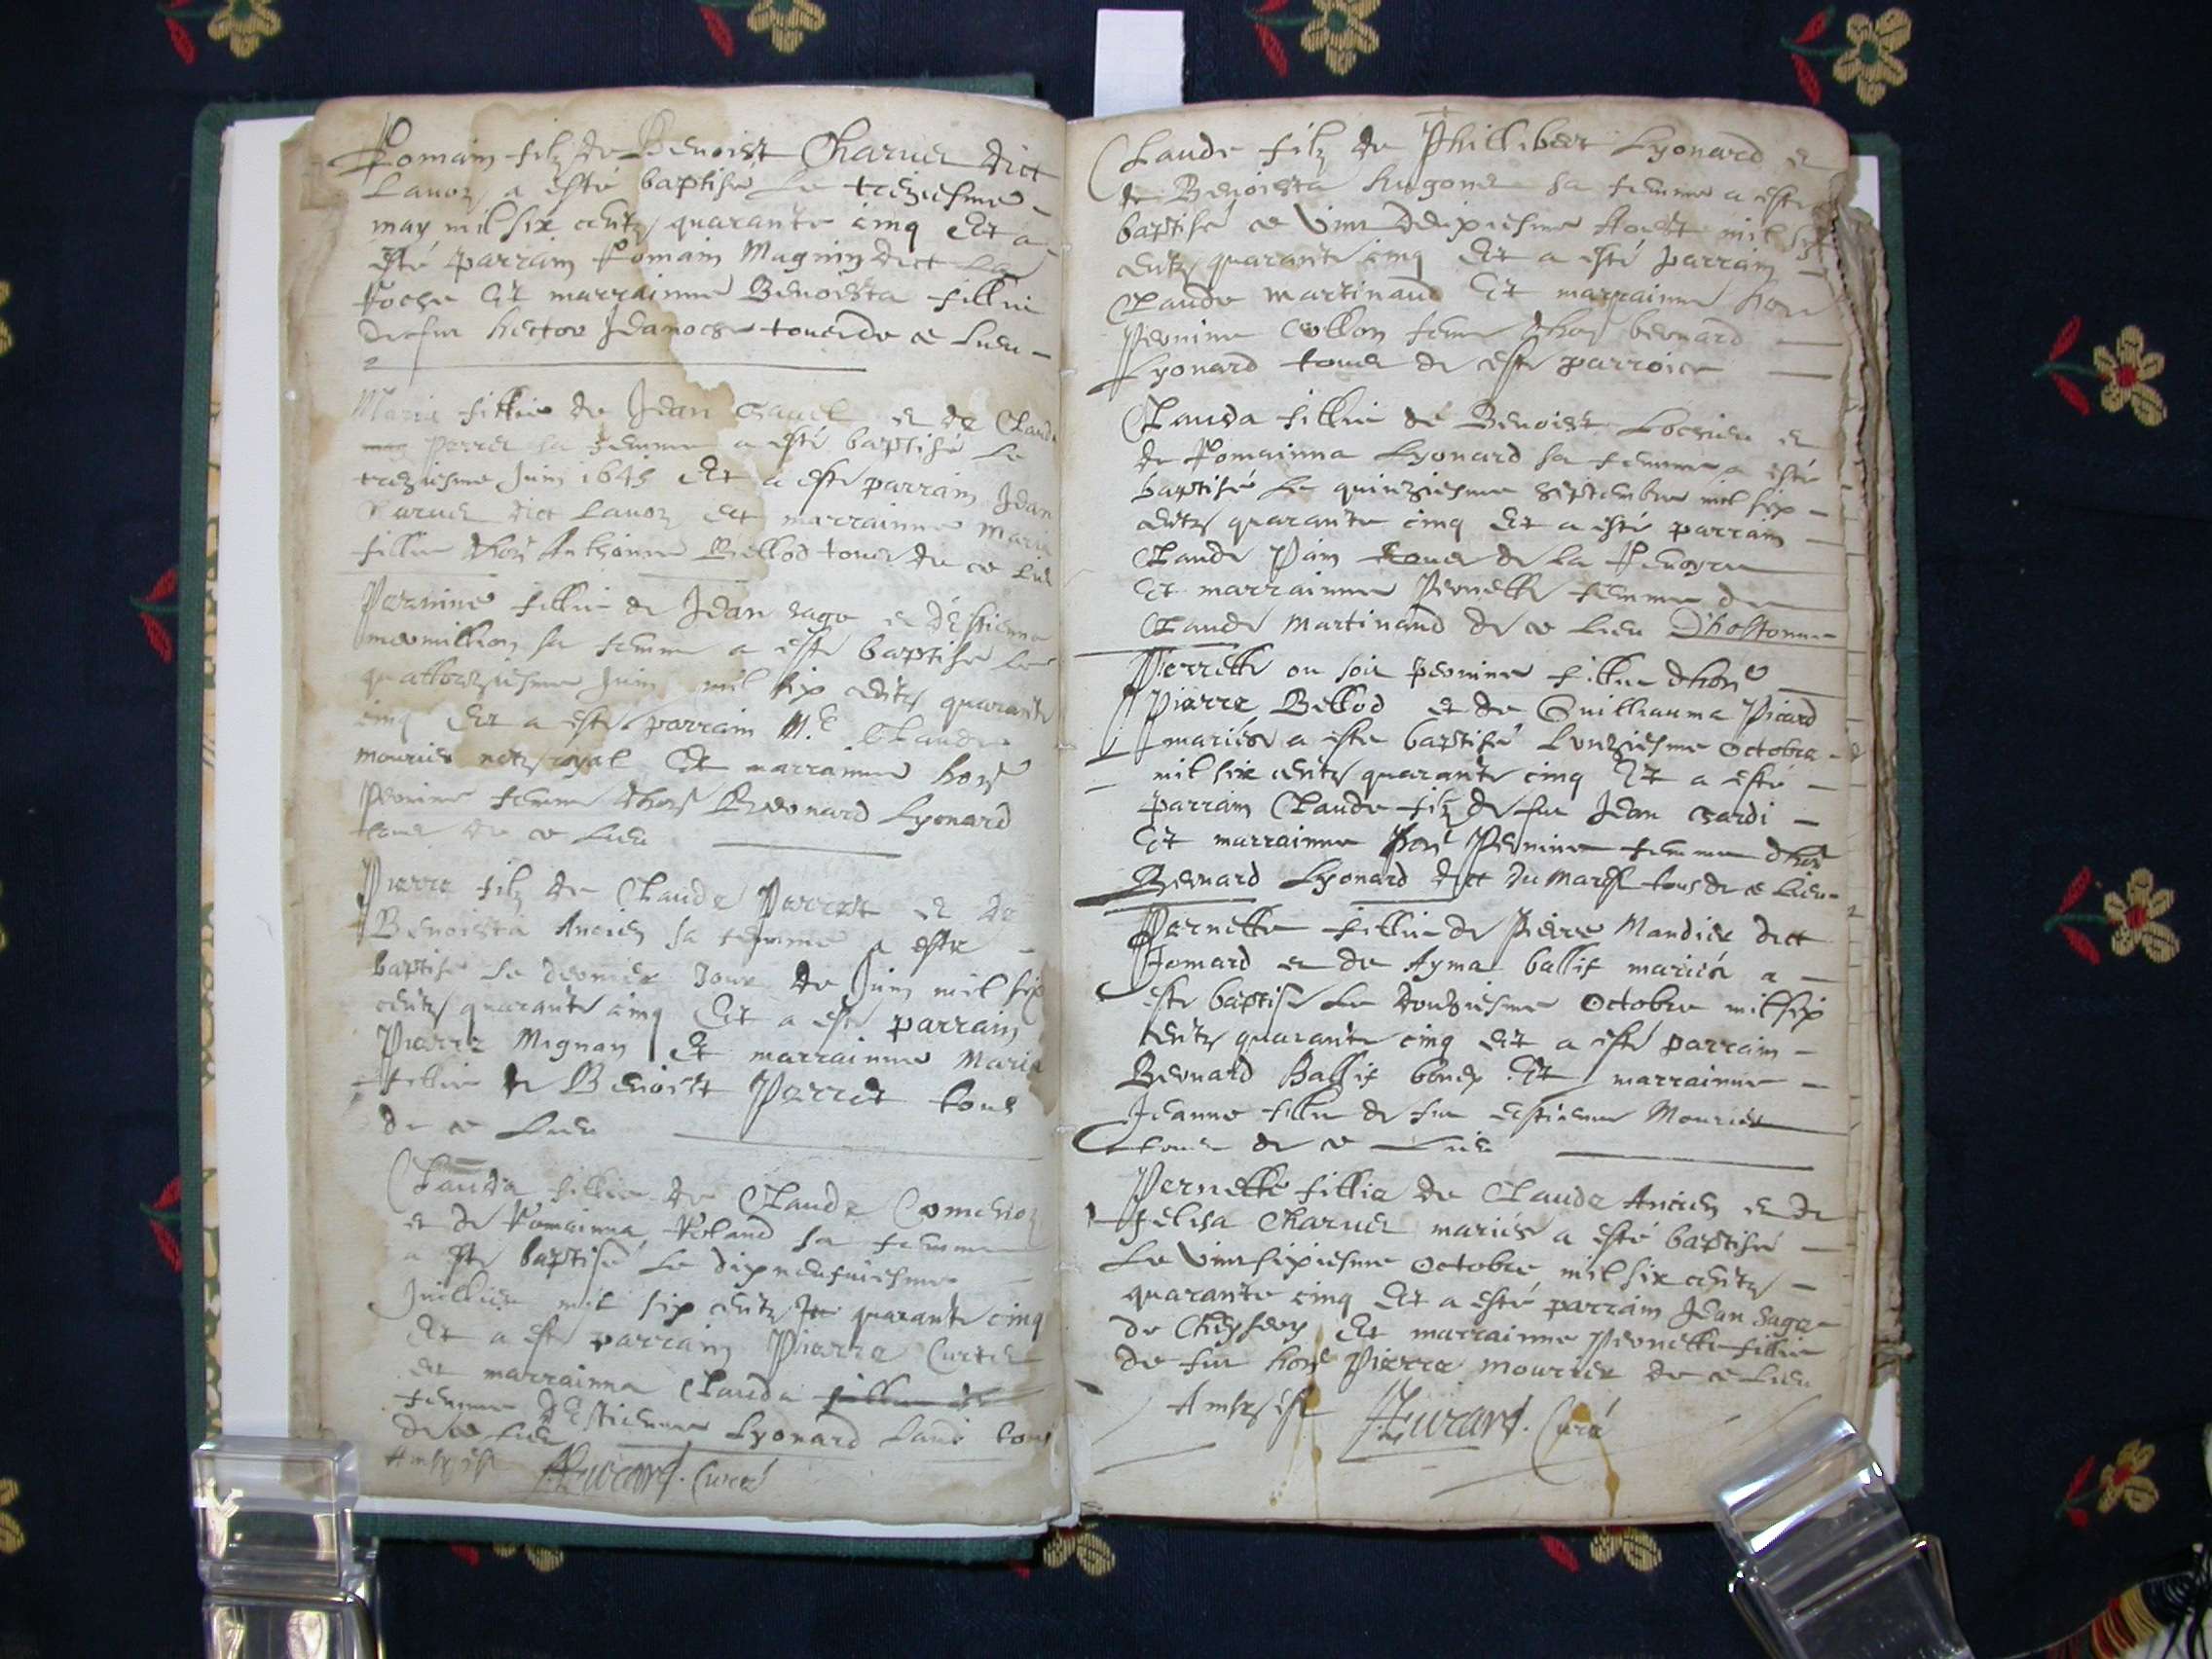 Romain filz de Benoist Charuet dict
Lauoz a esté baptisé le treziesme
may mil six centz quarante cinq Et a
esté parrain Romain Magnin dict La
Roche Et marrainne Benoista fillie
de feu hector Jdanoche tous de ce lieu
Maria fillie de Jean et de Claud
perret sa femme a esté baptisé le
treziesme Juin 1645 Et a esté parrain Jean
Charuet dict Lauoz et marrainne Maria
fillie d'hon Anthoinne Bellod tous de ce lie
Pernine fillie de Jean sage et d'Estienna
mermillion sa femme a esté baptisé le
quattorziesme Juin mil six centz quarante
cinq Et a esté parrain M.e Claude
mourier notz royal Et marrainne hon
Pernine femme d'hon Bernard Lyonard
tous de ce lieu
Pierre filz de Claude Perret et de
Benoista Ancien sa femme a esté
baptisé le dernier Jour de Juin mil six
centz quarante cinq Et a esté parrain
Pierre Mignon Et marrainne Maria
fillie de Benoist Perret tous
de ce lieu
Clauda fillie de Claude
et de Romainna Roland sa femme
a esté baptisé le dixneufuiesme
Juilliet mil six centz quarante cinq
Et a esté parrain Pierre Curtet
et marrainna Clauda fillie de
femme d'Estienne Lyonard tous
de ce lieu
Curé
Claude filz de Philibert Lyonard et
de Benoista hugonet sa femme a esté
baptisé ce vint deuxiesme Aoust mil six
centz quarante cinq Et a esté parrain
Claude Martinand Et marrainne hon
Pernine Collon femme d'hon bernard
Lyonard tous de este parroice
Clauda fillie de Benoist Lochieu et
de Romainna Lyonard sa femme a esté
baptisé le quinziesme Septembre mil six
centz quarante cinq Et a esté parrain
Claude Pain tous de la
Et marrainne Pernette femme de
Claude Martinand de ce lieu D'hostonne
Perrette ou soit pernine fillie d'hon
Pierre Bellod et de Guilliauma Picard
mariés a esté baptisé l'onziesme octobre
mil six centz quarante cinq Et a esté
parrain Claude filz de feu Jean sardi
Et marrainne hon Pernine femme d'hon
Bernard Lyonard dict du Marest tous de ce lieu
Pernette fillie de Pierre Mandier dict
Jomard et de Ayma ballif mariés a
esté baptisé le douziesme Octobre mil six
centz quarante cinq Et a esté parrain
Bernard Ballif Et marrainne
Jeanne fillie de feu estienne Mourier
tous de ce lieu
Pernette fillie de Claude Ancien et de
felisa Charuet mariés a esté baptisé
Le vint sixiesme octobre mil six centz
quarante cinq Et a esté parrain Jean sage
de Et marrainne Pernette fillie
de feu hon Pierre mourier de ce lieu
Curé